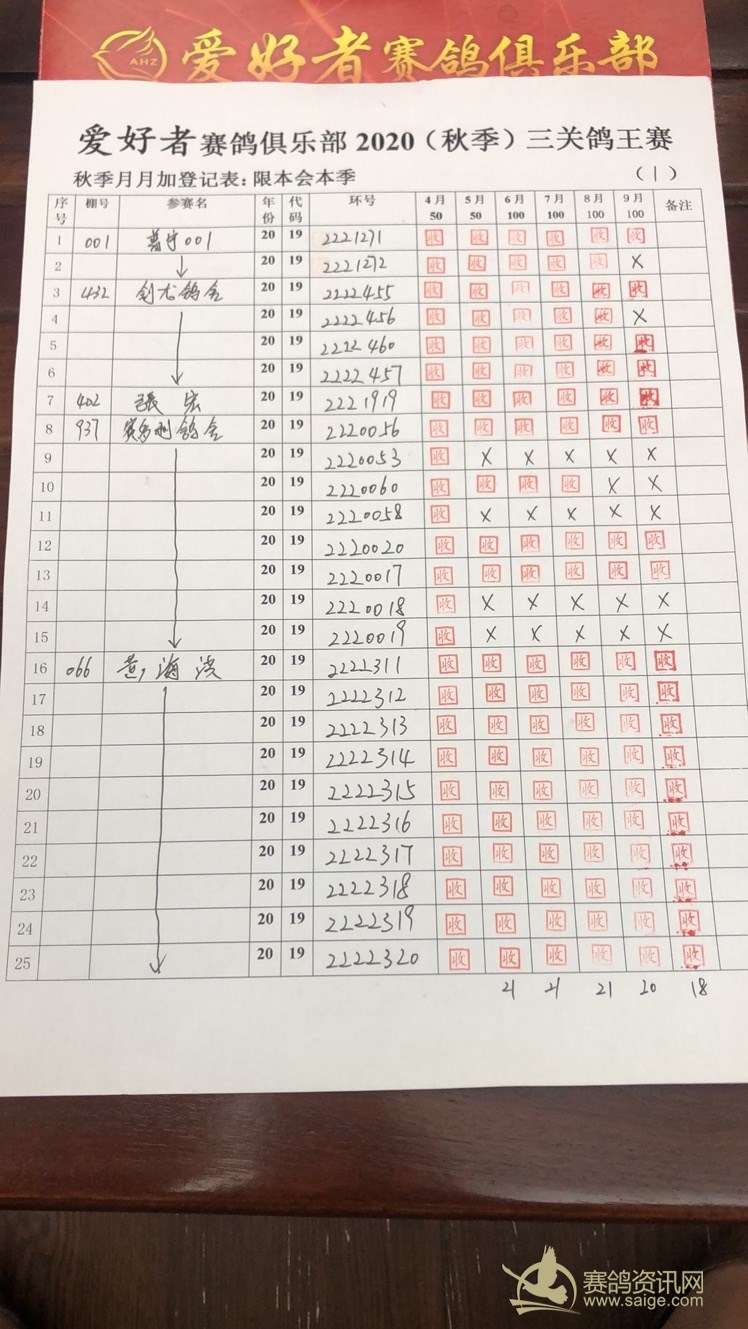 AHZ 爱好者赛鸽俱乐部
爱好者赛鸽俱乐部 2020（秋季）三关鸽王赛
秋季月月加登记表：限本会本季 （1）
序号 棚号 参赛名 年份 代码 环号 4月50 5月50 6月100 7月100 8月100 9月100 备注
1 001 普宁001 20 19 2221271 收 收 收 收 收 收
2 20 19 2221272 收 收 收 收 收 X
3 432 剑龙鸽舍 20 19 2222455 收 收 收 收 收 收
4 20 19 2222456 收 收 收 收 收 X
5 20 19 2222460 收 收 收 收 收 收
6 20 19 2222457 收 收 收 收 收 收
7 402 張宏 20 19 2221919 收 收 收 收 收 收
8 937 鸽舍 20 19 2220056 收 收 收 收 收 收
9 20 19 2220053 收 X X X X X
10 20 19 2220060 收 收 收 收 X X
11 20 19 2220058 收 X X X X X
12 20 19 2220020 收 收 收 收 收 收
13 20 19 2220017 收 收 收 收 收 收
14 20 19 2220018 收 X X X X X
15 20 19 2220019 收 X X X X X
16 066 海 20 19 2222311 收 收 收 收 收 收
17 20 19 2222312 收 收 收 收 收 收
18 20 19 2222313 收 收 收 收 收 收
19 20 19 2222314 收 收 收 收 收 收
20 20 19 2222315 收 收 收 收 收 收
21 20 19 2222316 收 收 收 收 收 收
22 20 19 2222317 收 收 收 收 收 收
23 20 19 2222318 收 收 收 收 收 收
24 20 19 2222319 收 收 收 收 收 收
25 20 19 2222320 收 收 收 收 收 收
21 21 21 20 18
赛鸽资讯网
www.saige.com